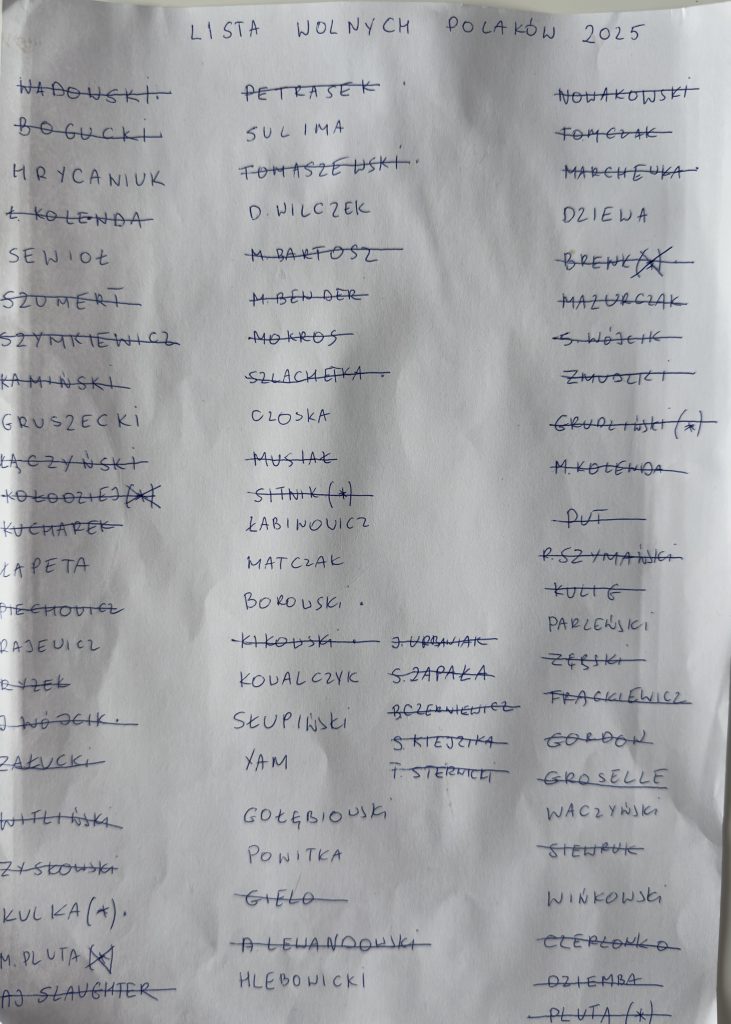 LISTA WOLNYCH POLAKÓW 2025
WADOWSKI.
BOGUCKI
HRYCANIUK
Ł. KOLENDA
SEWIOŁ
SZUMERT
SZYMKIEWICZ
KAMIŃSKI
GRUSZECKI
ŁĄCZYŃSKI
KOŁODZIEJ (*)
KUCHAREK
ŁAPETA
PIECHOWICZ
RAJEWICZ
RYŻEK
J. WÓJCIK.
ZAŁUCKI
WITLIŃSKI
ZYSKOWSKI
KULKA (*).
M. PLUTA (*)
AJ SLAUGHTER
PETRASEK
SULIMA
TOMASZEWSKI.
D. WILCZEK
M. BARTOSZ
M. BENDER
MOKROS
SZLACHETKA
CZOSKA
MUSIAŁ
SITNIK (*)
ŁABINOWICZ
MATCZAK
BOROWSKI.
KIKOWSKI
KOWALCZYK
SŁUPIŃSKI
YAM
GOŁĘBIOWSKI
POWITKA
GIELO
A LEWANDOWSKI
HLEBOWICKI
J. URBANIAK
S. ZAPAŁA
B CZERNIEWICZ
S. KIEJZIKA
T. STERNICKI
NOWAKOWSKI
TOMCZAK
MARCHEWKA
DZIEWA
BRENK (*)
MAZURCZAK
S. WÓJCIK
ZMUDZKI
GRUDZIŃSKI (*)
M. KOLENDA
PUT
P. SZYMAŃSKI
KULIG
PARZEŃSKI
ZĘBSKI
FRĄCKIEWICZ
GORDON
GROSELLE
WACZYŃSKI
SIEWRUK
WIŃKOWSKI
CZERLONKO
DZIEMBA
PLUTA (*)